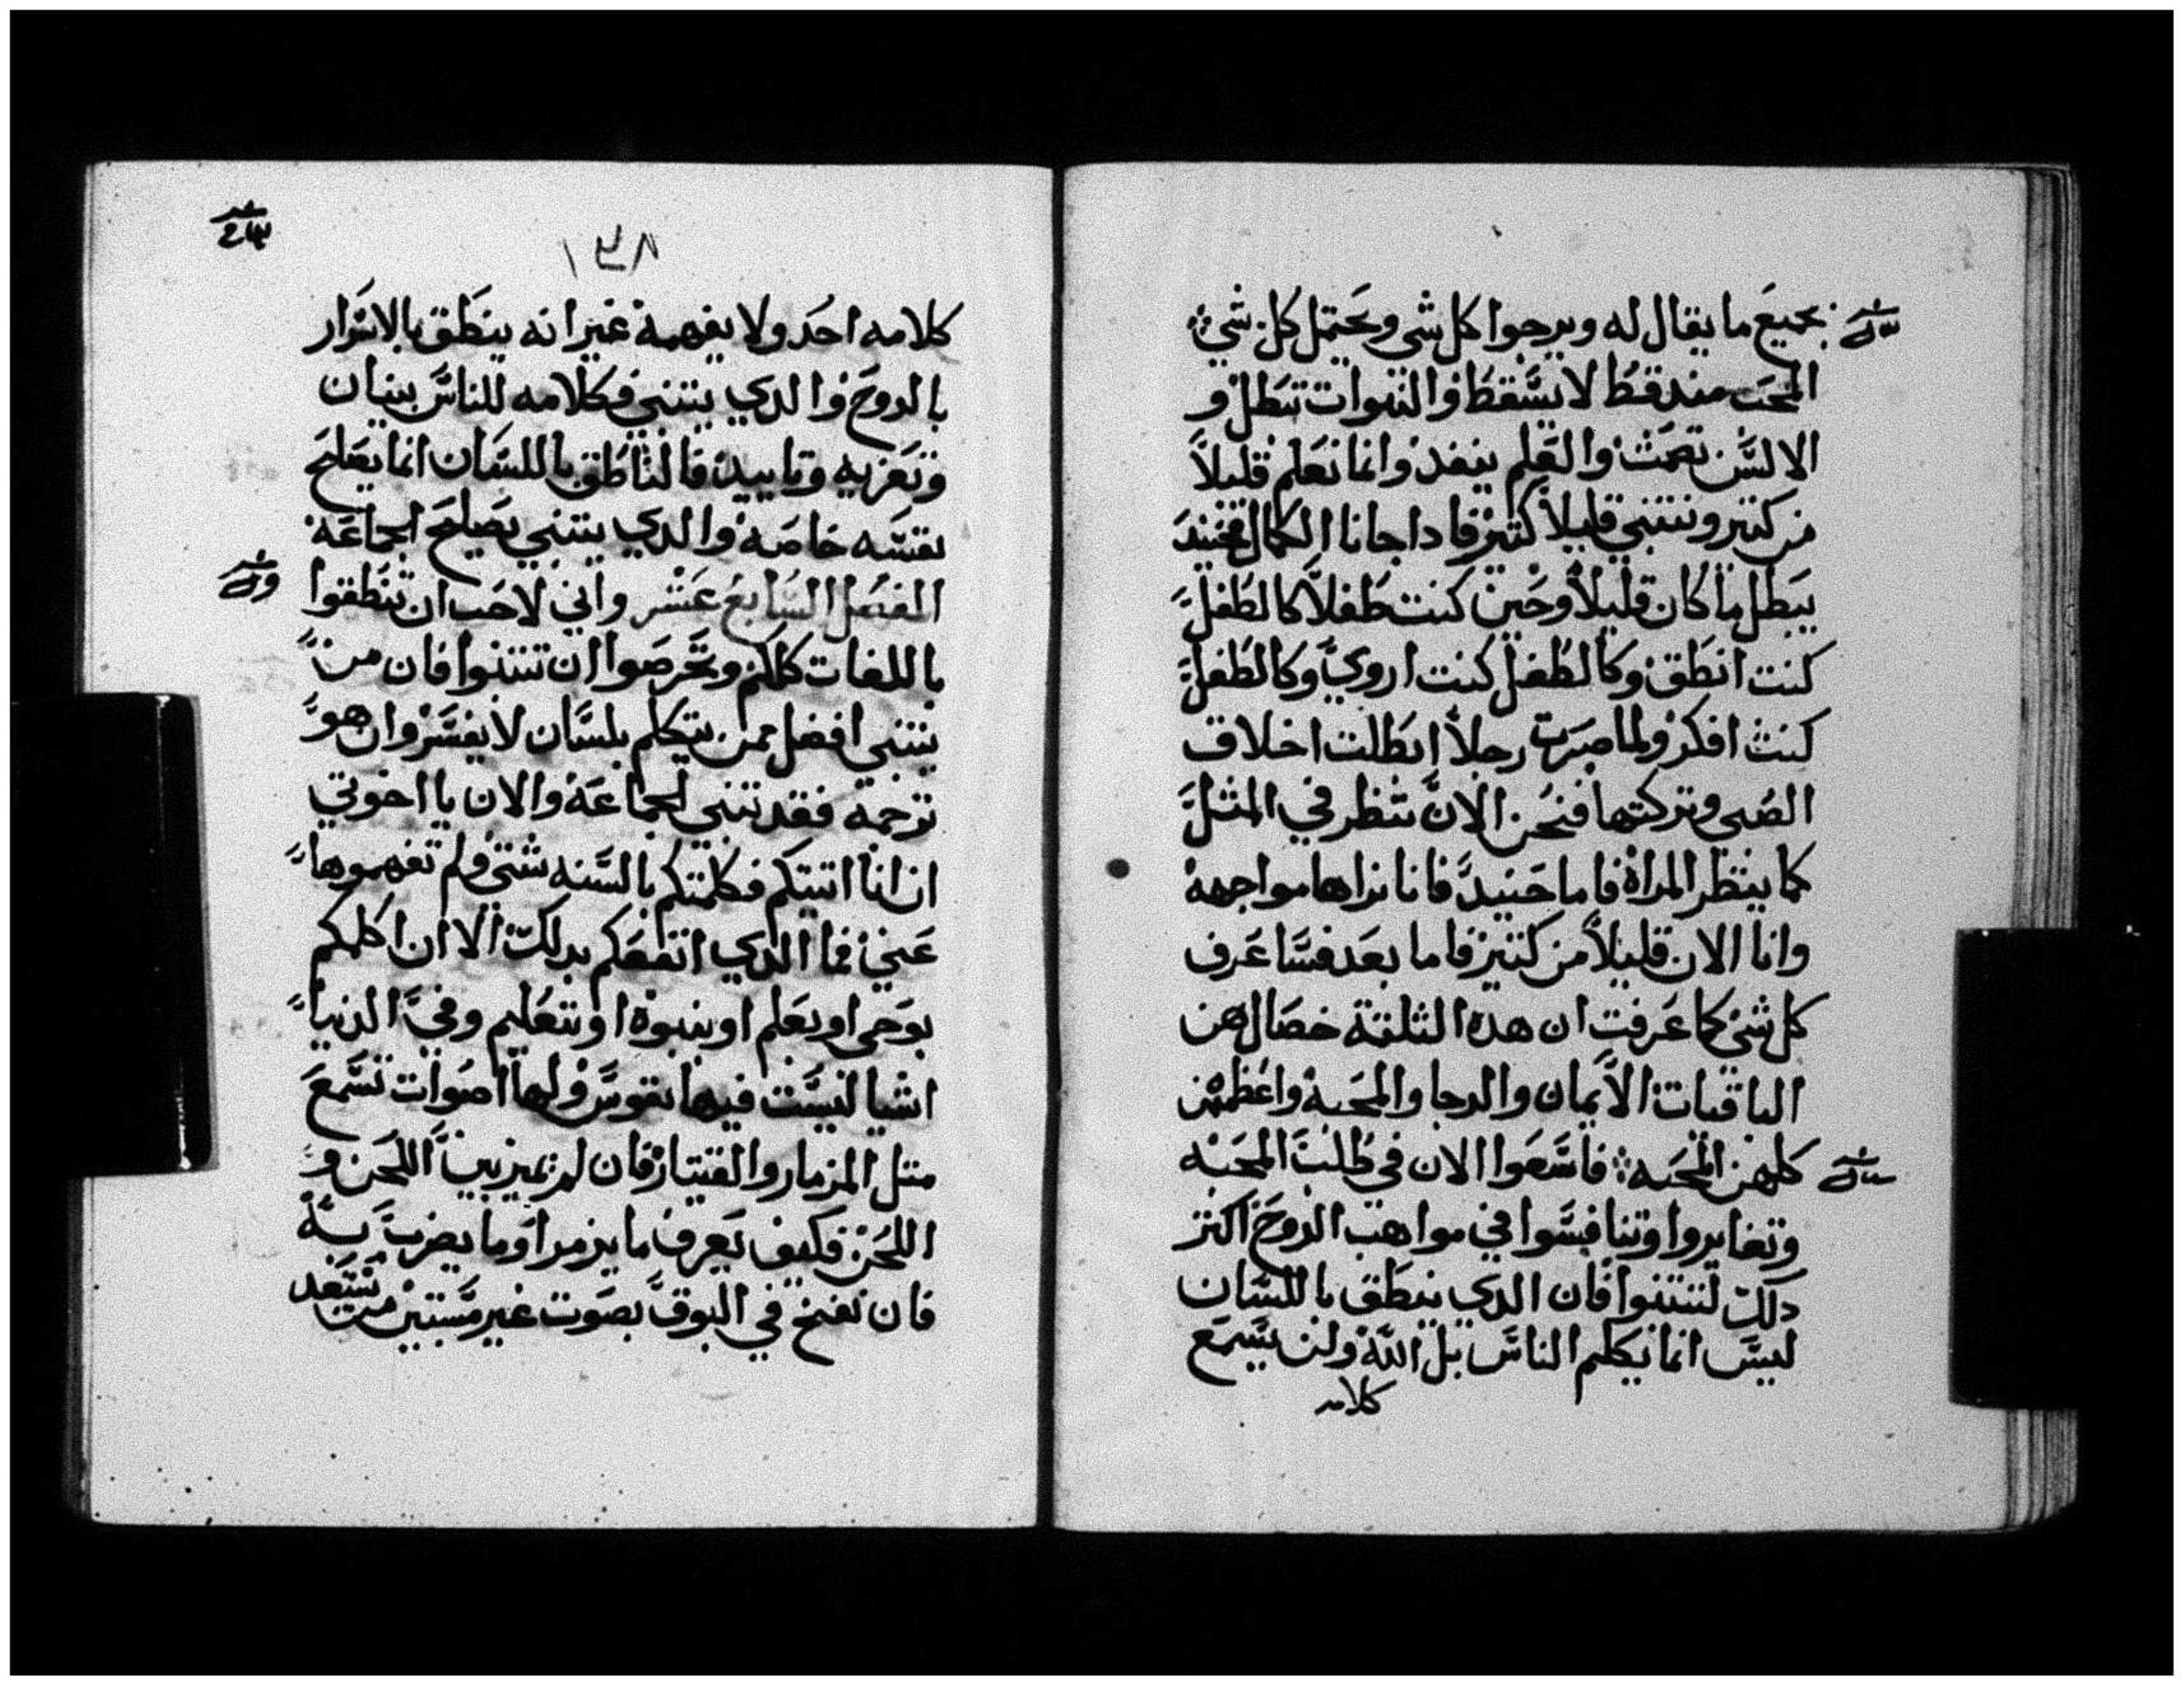 بجميع ما يقال له ويرجوا كل شي ويحتمل كل شي
المحب مند قط لا يسقط والنبوات تبطل و
الالسن تصمت والعلم ينفد وانما نعلم قليلاً
من كتير ونتنبي قليلاً من كتير فادا جانا الكمال فحينيد
يبطل ما كان قليلاً وحين كنت طفلاً كالطفل
كنت انطق وكالطفل كنت اروي وكالطفل
كنت افكر ولما صرت رجلاً ابطلت اخلاق
الصبي وتركتها فنحن الان ننظر في المثل
كما ينظر المراة فاما حينيد فانا نراها مواجهة
وانا الان قليلاً من كتير فاما بعد فسا عرف
كل شي كما عرفت ان هده الثلتة خصال هن
الباقيات الايمان والرجا والمحبة واعظمهن
كلهن المحبه فاسعوا الان في طلب المحبه
وتغايروا وتنافسوا في مواهب الروح اكتر
دلك لتتنبوا فان الدي ينطق باللسان
ليس انما يكلم الناس بل الله ولن يسمع
كلامه
١٣٨
كلامه احد ولا يفهمه غير انه ينطق بالاسرار
بالروح والدي يتنبي فكلامه للناس بنيان
وتعزيه وتاييد فالناطق باللسان انما يصلح
نفسه خاصة والدي يتنبي يصلح الجماعة
الفصل السابع عشر واني لاحب ان تنطقوا
باللغات كلكم وتحرصوا ان تتنبوا فان من
يتنبي افضل ممن يتكلم بلسان لا يفسر وان هو
ترجمه فقد تنبي لجماعة والان يا اخوتي
ان انا اتيتكم فكلمتكم بالسنه شتي ولم تفهموها
عني فما الدي انفعكم بدلك الا ان اكلمكم
بوحي او بعلم او بنبوة او بتعليم وفي الدنيا
اشيا ليست فيها نفوس ولها اصوات تسمع
متل المزمار والقيتار فان لم تميز بين اللحن و
اللحن فكيف يعرف ما يزمر او ما يضرب به
فان نفخ في البوق بصوت غير مستبين من يستعد